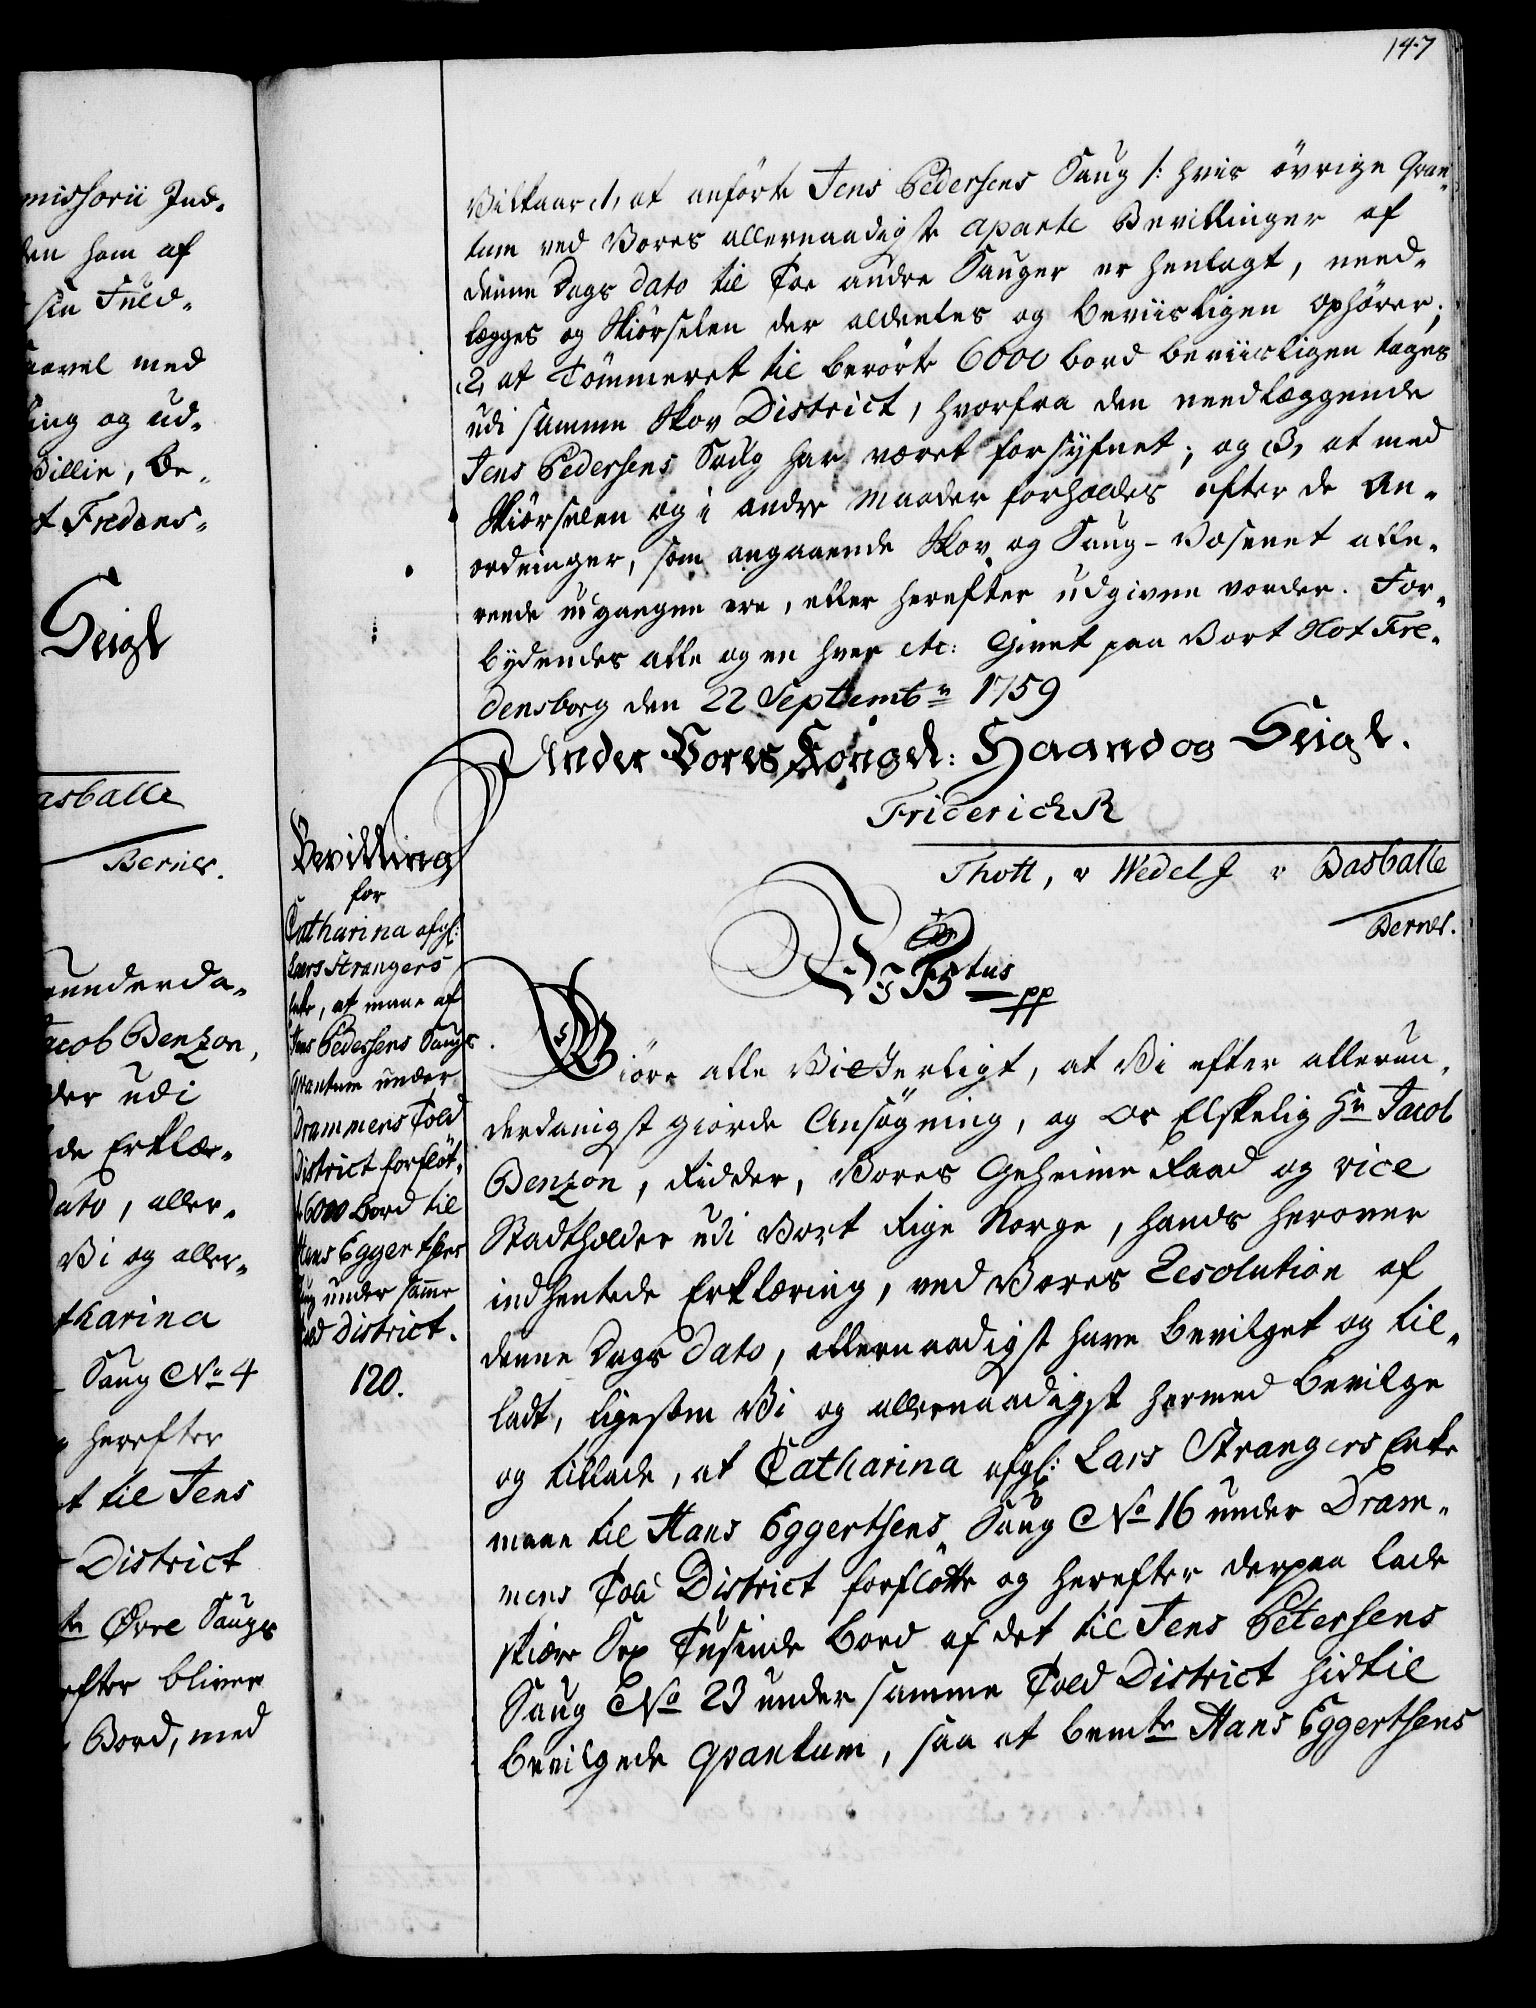 147
missorii Ind-
den ham af
sin Fuld-
saavel med
ting og ud-
Villie, be-
t Fredens-
Seigl
Basballe
Berner.
runderda-
Jacob Benzon,
der udi
de Erklær-
Dato, aller-
Vi og aller-
tharina
Saug No 4
herefter
t til Jens
District
te Øvre Saugs
efter bliver
Bord, med
Vilkaar 1, at anførte Jens Pedersens Saug /: hvis övrige Qvan-
tum ved Vores allernaadigste aparte Bevillinger af
denne Dags dato til Toe andre Sauger er henlagt, need-
lægges og Skiörselen der aldeeles og beviisligen ophörer;
2, at Tömmeret til berörte 6000 bord beviisligen tages
udi samme Skov District, hvorfra den needlæggende
Jens Pedersens Saug har været forsÿfnet; og 3, at med
Skiörselen og i andre Maader forholdes efter de An-
ordninger, som angaaende Skov og Saug-Væsenet alle-
reede udgangne ere, eller herefter udgivne vorder. For-
bydendes alle og en hver etc: Givet paa Vort Slot Fre-
densborg den 22 Septembr 1759
Under Vores Kongel: Haand og Seigl.
Friderich R
Thott, v Wedel J v Basballe
Berner.
Bevilling
for
Catharina afgl:
Lars Strangers
Enke, at maae af
Jens Pedersens Saugs
Qvantum under
Drammens Told
District forflöt-
te 6000 Bord til
Hans Eggertsens
Saug under samme
Told District.
120.
F 5tus
pp
Giöre alle Vitterligt, at Vi efter allerun-
derdanigst giorde Ansøgning, og Os Elskelig Hr Jacob
Benzon, Ridder, Vores Geheime Raad og vice
Stadtholder udi Vort Rige Norge, hands herover
indhentede Erklæring, ved Vores Resolution af
denne Dags Dato, allernaadigst have bevilget og til-
ladt, ligesom Vi og allernaadigst hermed bevilge
og tillade, at Catharina afgl: Lars Strangers Enke
maae til Hans Eggertsens Saug No 16 under Dram-
mens Told District forflötte og herefter derpaa lade
skiære Sex Tusinde bord af det til Jens Petersens
Saug No 23 under samme Told District hidtil
bevilgede Qvantum, saa at bemte Hans Eggertsens